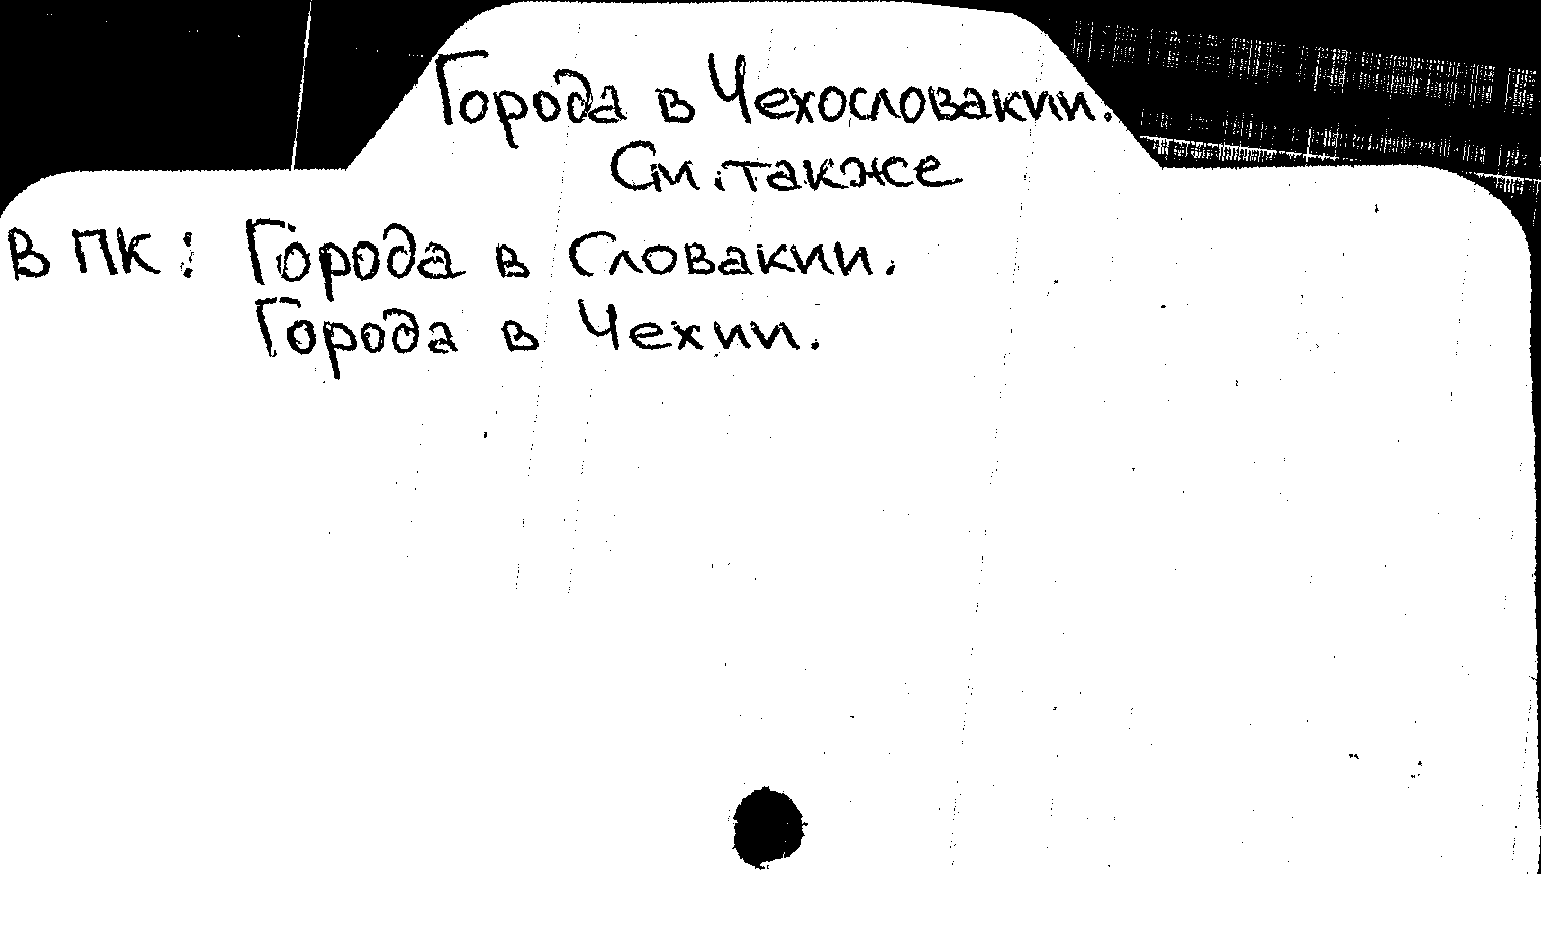 Города в Чехословакии.
См. также
в ПК: Города в Словакии.
Города в Чехии.